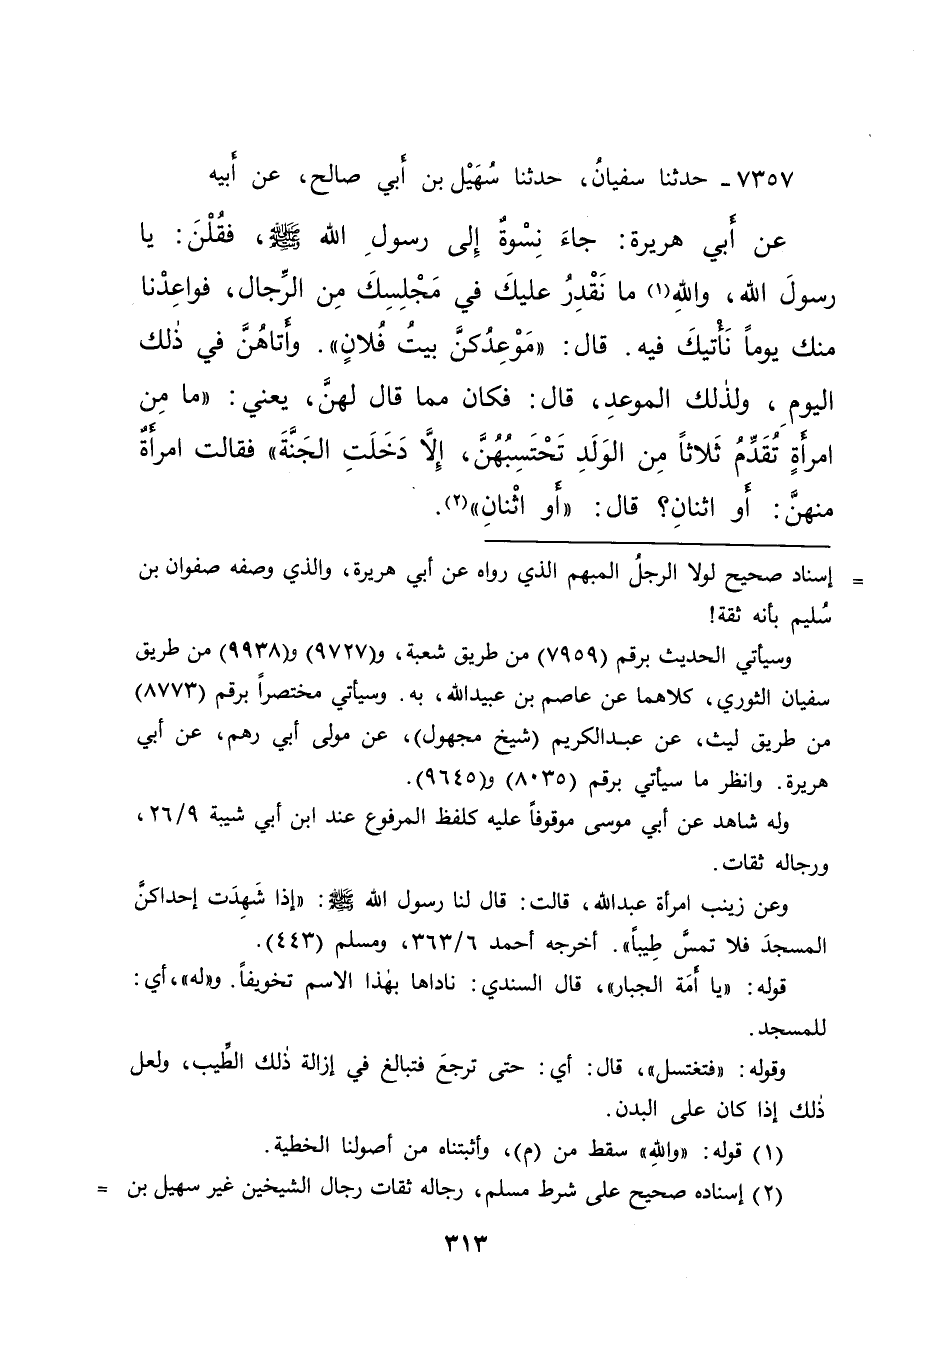 ٧٣٥٧ـ حدثنا سفيانُ، حدثنا سُهَيْل بن أَبي صالح، عن أَبيه
عن أَبي هريرة: جاءَ نِسْوةٌ إِلى رسولِ الله ﷺ، فقُلْنَ: يا
رسولَ الله، واللهِ(١) ما نَقْدِرُ عليكَ في مَجْلِسِكَ مِن الرِّجال، فواعِدْنا
منك يوماً نَأْتيكَ فيه. قال: «مَوْعِدُكنَّ بيتُ فُلانٍ». وأَتاهُنَّ في ذٰلك
اليومِ، ولذٰلك الموعدِ، قال: فكان مما قال لهنَّ، يعني: «ما مِن
امرأَةٍ تُقَدِّمُ ثَلاثاً مِن الوَلَدِ تَحْتَسِبُهُنَّ، إِلَّا دَخَلَتِ الجَنَّةَ» فقالت امرأَةٌ
منهنَّ: أَو اثنانِ؟ قال: «أَو اثْنانِ»(٢).
= إسناد صحيح لولا الرجلُ المبهم الذي رواه عن أبي هريرة، والذي وصفه صفوان بن
سُليم بأنه ثقة!
وسيأتي الحديث برقم (٧٩٥٩) من طريق شعبة، و(٩٧٢٧) و(٩٩٣٨) من طريق
سفيان الثوري، كلاهما عن عاصم بن عبيدالله، به. وسيأتي مختصراً برقم (٨٧٧٣)
من طريق ليث، عن عبدالكريم (شيخ مجهول)، عن مولى أبي رهم، عن أبي
هريرة. وانظر ما سيأتي برقم (٨٠٣٥) و(٩٦٤٥).
وله شاهد عن أبي موسى موقوفاً عليه كلفظ المرفوع عند ابن أبي شيبة ٢٦/٩،
ورجاله ثقات.
وعن زينب امرأة عبدالله، قالت: قال لنا رسول الله ﷺ: «إذا شَهِدَت إحداكنَّ
المسجدَ فلا تمسَّ طِيباً». أخرجه أحمد ٣٦٣/٦، ومسلم (٤٤٣).
قوله: «يا أَمَة الجبار»، قال السندي: ناداها بهٰذا الاسم تخويفاً. و«له»، أي:
للمسجد.
وقوله: «فتغتسل»، قال: أي: حتى ترجعَ فتبالغ في إزالة ذٰلك الطِّيب، ولعل
ذٰلك إذا كان على البدن.
(١) قوله: «واللهِ» سقط من (م)، وأثبتناه من أصولنا الخطية.
(٢) إسناده صحيح على شرط مسلم، رجاله ثقات رجال الشيخين غير سهيل بن =
٣١٣